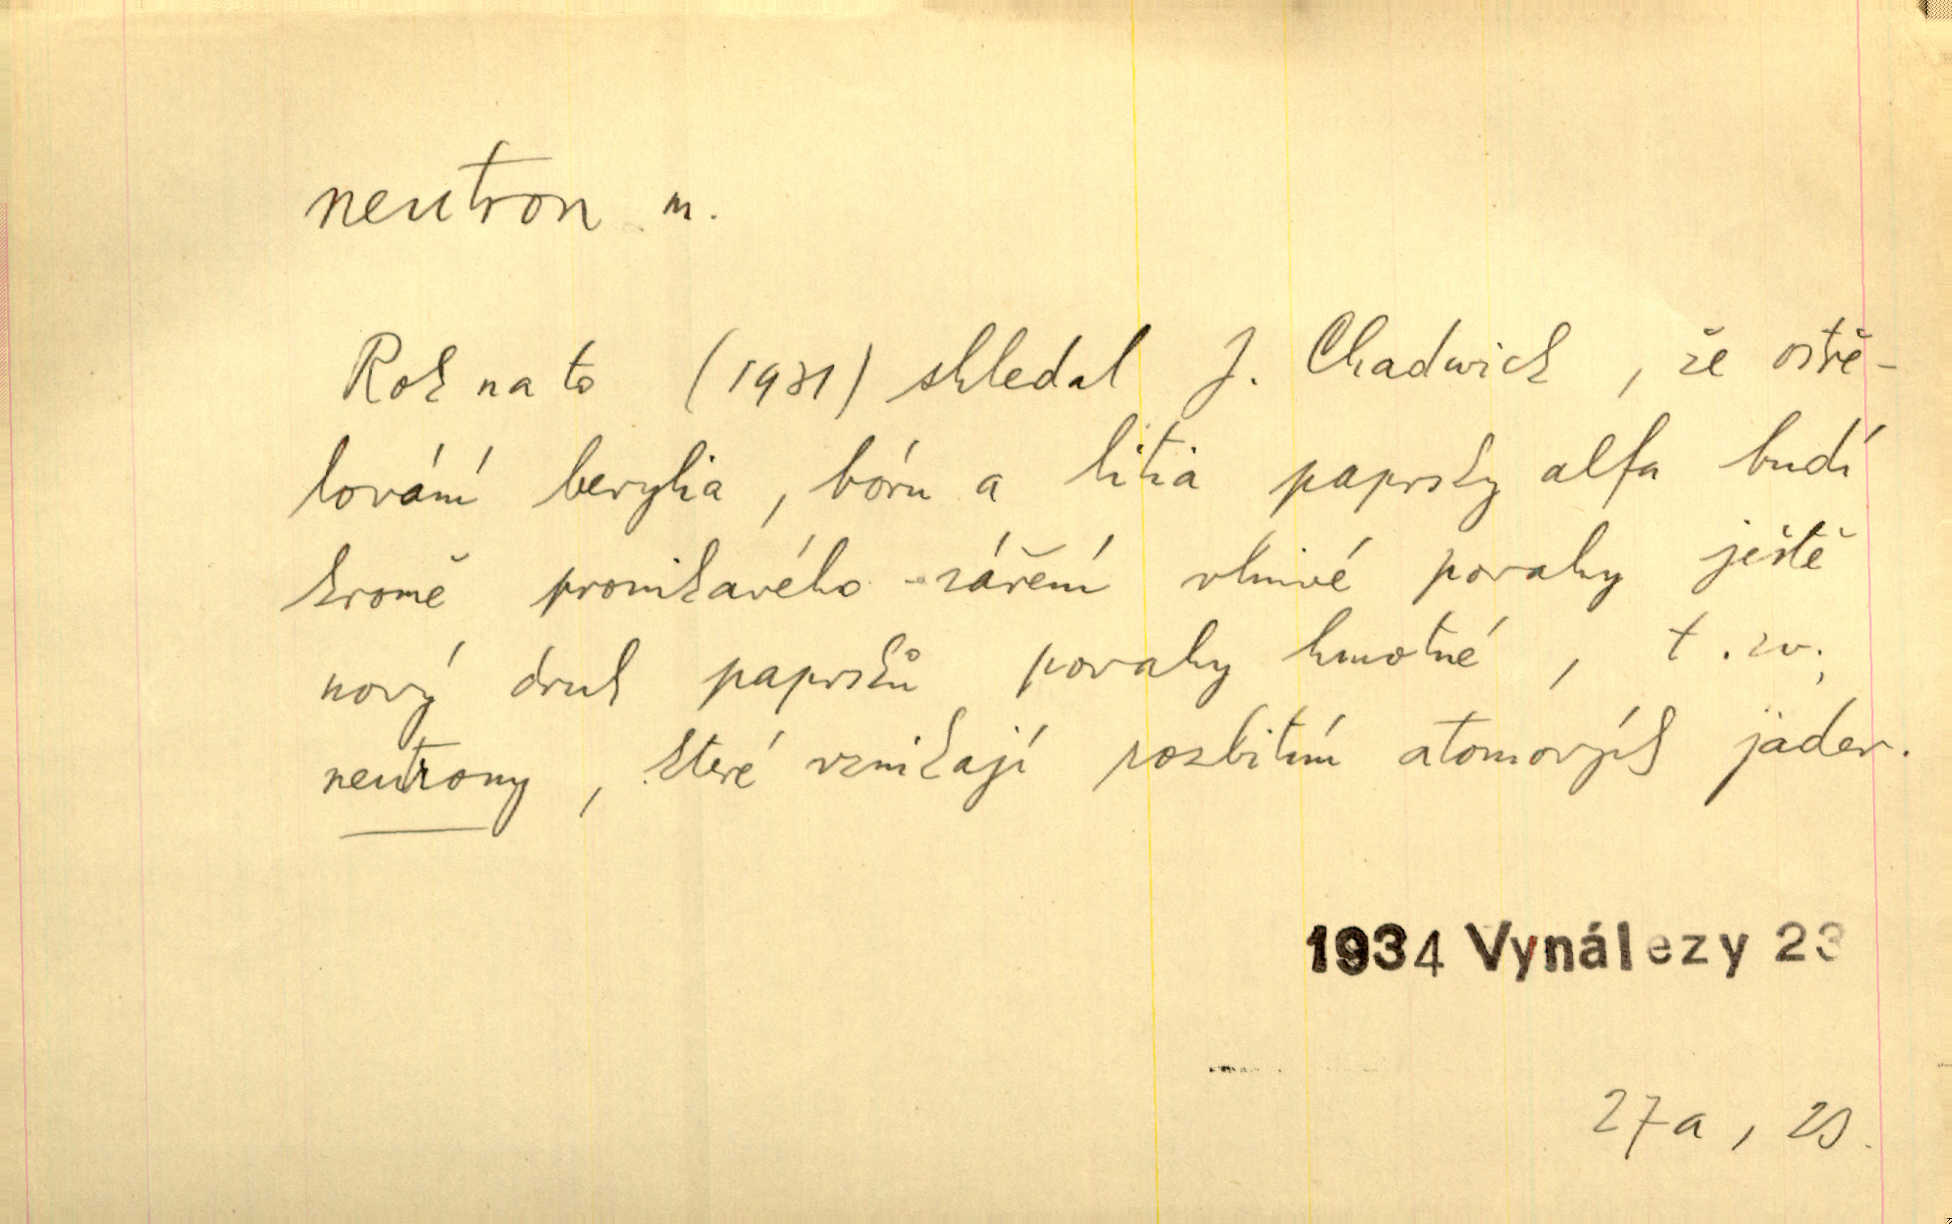 neutron m.
Rok na to (1931) shledal J. Chadwick, že ostře-
lování berylia, bóru a litia paprsky alfa budí
kromě pronikavého záření vlnivé povahy ještě
nový druh paprsků povahy hmotné, t. zv.
neutrony, které vznikají rozbitím atomových jader.
1934 Vynálezy 23
27a,